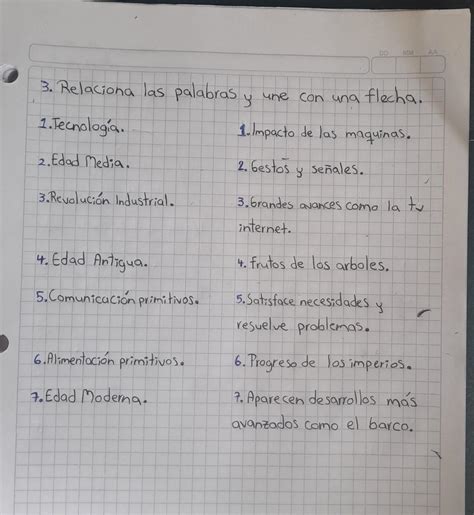 DD MM AA
3. Relaciona las palabras y une con una flecha.
1. Tecnología.
1. Impacto de las maquinas.
2. Edad Media.
2. Gestos y señales.
3. Revolución Industrial.
3. Grandes avances como la tv
internet.
4. Edad Antigua.
4. frutos de los arboles.
5. Comunicación primitivos.
5. Satisface necesidades y
resuelve problemas.
6. Alimentación primitivos.
6. Progreso de los imperios.
7. Edad Moderna.
7. Aparecen desarrollos más
avanzados como el barco.